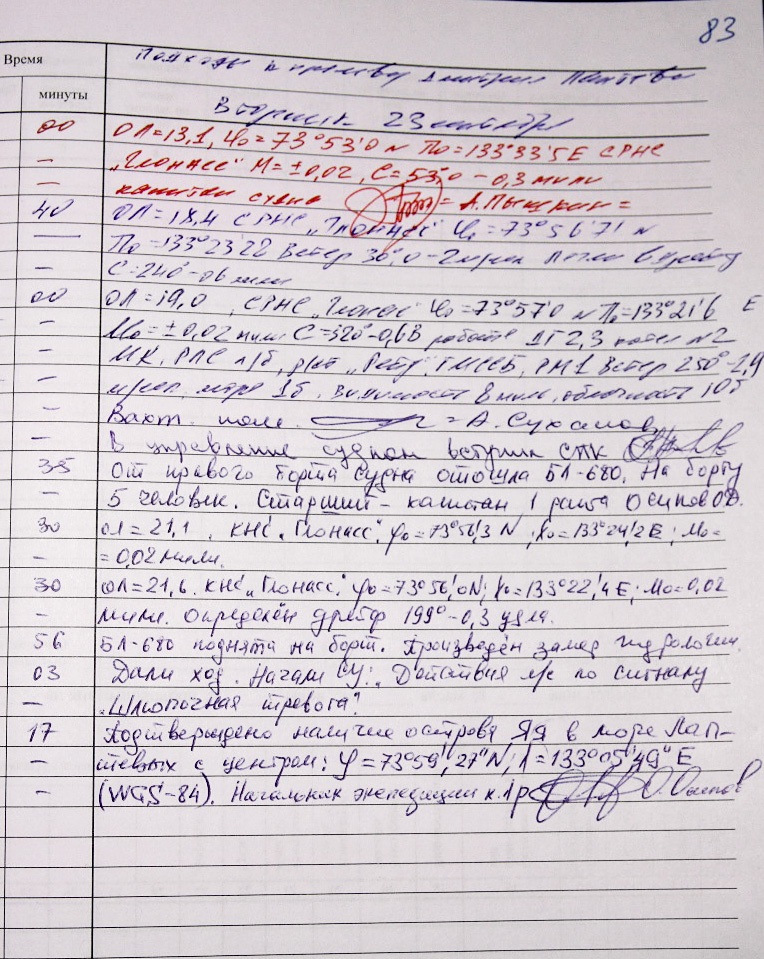 83
Время
Подходы к проливу Дмитрия Лаптева
минуты
Вторник 23 сентября
00 ОЛ=13,1, φ₀=73°53'0 N П₀=133°33'5 E СРНС
— „Глонасс" М=±0,02, С=53°,0 – 0,3 мили
— капитан судна = А. Пышкин =
40 ОЛ=18,4 СРНС „Глонасс" φ₀=73°56'71 N
— П₀=133°23'22 Ветер 30°,0-2 м/сек
— С=240°-06 мили
00 ОЛ=19,0, СРНС „Глонасс" φ₀=73°57'0 N П₀=133°21'6 E
— М₀=±0,02 мили С=320°-0,6 В работе ДГ 2,3 котел N2
— МК, РЛС п/б, р/ст „Рейд", ГМССБ, РМ1 Ветер 250°-2,9
— м/сек, море 1б. Видимость 8 миль, облачность 10б
— Вахт. пом. = А. Суханов
— В управление судном вступил СПК
35 От правого борта судна отошла БЛ-680. На борту
— 5 человек. Старший – капитан 1 ранга Осипов О.Д.
30 ОЛ=21,1. КНС „Глонасс". φ₀=73°56',3 N; λ₀=133°24',2 E; М₀=
— =0,02 мили.
30 ОЛ=21,6. КНС „Глонасс". φ₀=73°56',0 N; λ₀=133°22',4 E; М₀=0,02
— мили. Определён дрейф 199°-0,3 узла.
56 БЛ-680 поднята на борт. Произведён замер гидрологии.
03 Дали ход. Начали СУ: „Действия л/с по сигналу
— „Шлюпочная тревога".
17 Подтверждено наличие острова Яя в море Лап-
— тевых с центром: φ=73°59',27" N; λ=133°05',49" E
— (WGS-84). Начальник экспедиции к.1р О. Осипов